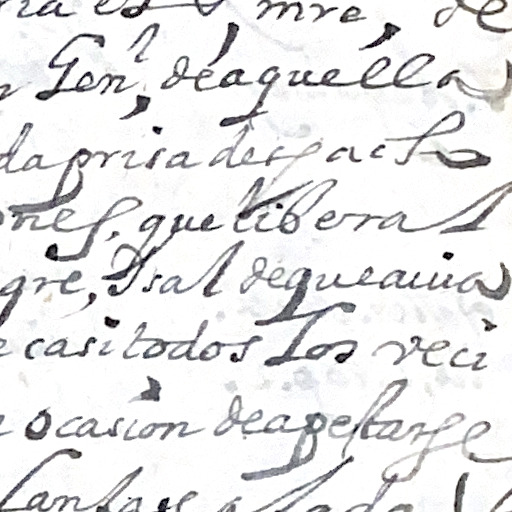 mre, de
Genl, de aquella
da prisa despacho
ones, que liberal
gre, Ysal de que avia
e casi todos los veci
ocasion de apestarse